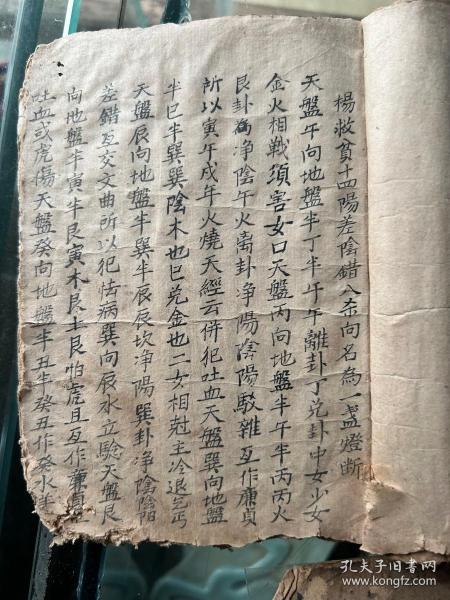 楊救貧十四陽差陰錯八杀向名為一盞燈断
天盤午向地盤半丁半午午離卦丁兑卦中女少女
金火相戰須害女口天盤丙向地盤半午半丙丙火
艮卦為净陰午火离卦净陽陰陽駁雜互作廉貞
所以寅午戌年火燒天經云併犯吐血天盤巽向地盤
半巳半巽巽陰木也巳兑金也二女相尅主冷退乞丐
天盤辰向地盤半巽半辰辰坎净陽巽卦净陰陰陽
差錯互交文曲所以犯怯病巽向辰水立驗天盤艮
向地盤半寅半艮寅木艮土艮怕虎且互作廉貞
吐血或虎傷天盤癸向地盤半丑半癸丑作癸水
孔夫子旧书网
www.kongfz.com